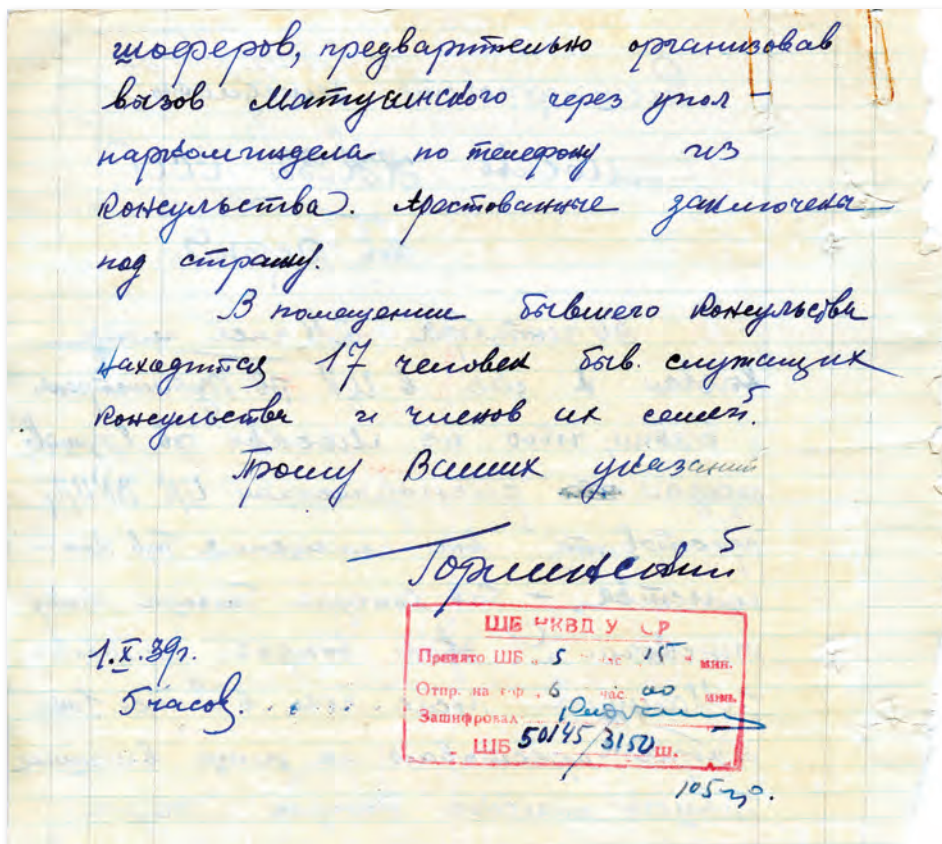 шоферов, предварительно организовав
вызов Матусинского через упол-
наркоминдела по телефону из
консульства. Арестованные заключены
под стражу.
В помещении бывшего консульства
находится 17 человек быв. служащих
консульства и членов их семей.
Прошу Ваших указаний
Горлинский
1.X.39г.
5 часов.
ШБ НКВД У С Р
Принято ШБ „ 5 " час 15 " мин.
Отпр. на „ 6 час 00 мин.
Зашифровал
ШБ 50145/3150 ш.